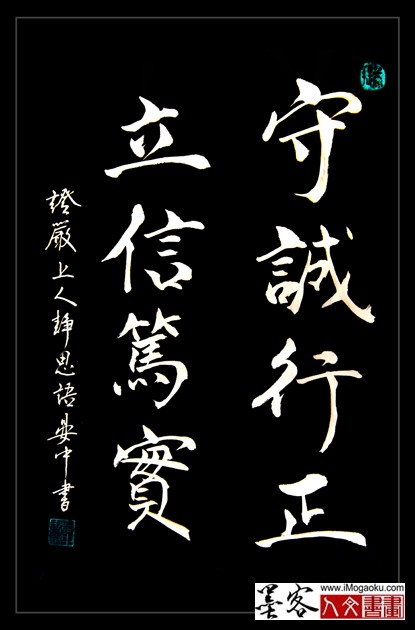 守誠行正
立信篤實
證嚴上人靜思語晏中書
墨客
www.iMogaoku.com
人文書畫